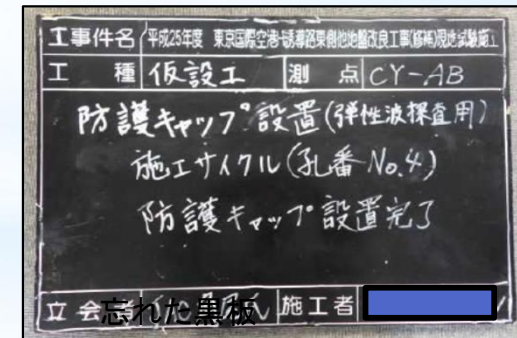 工事件名 平成25年度 東京国際空港H誘導路東側他地盤改良工事(修補)現地試験施工
工 種 仮設工 測 点 CY-AB
防護キャップ設置(弾性波探査用)
施工サイクル(孔番No.4)
防護キャップ設置完了
立会者 施工者
忘れた黒板